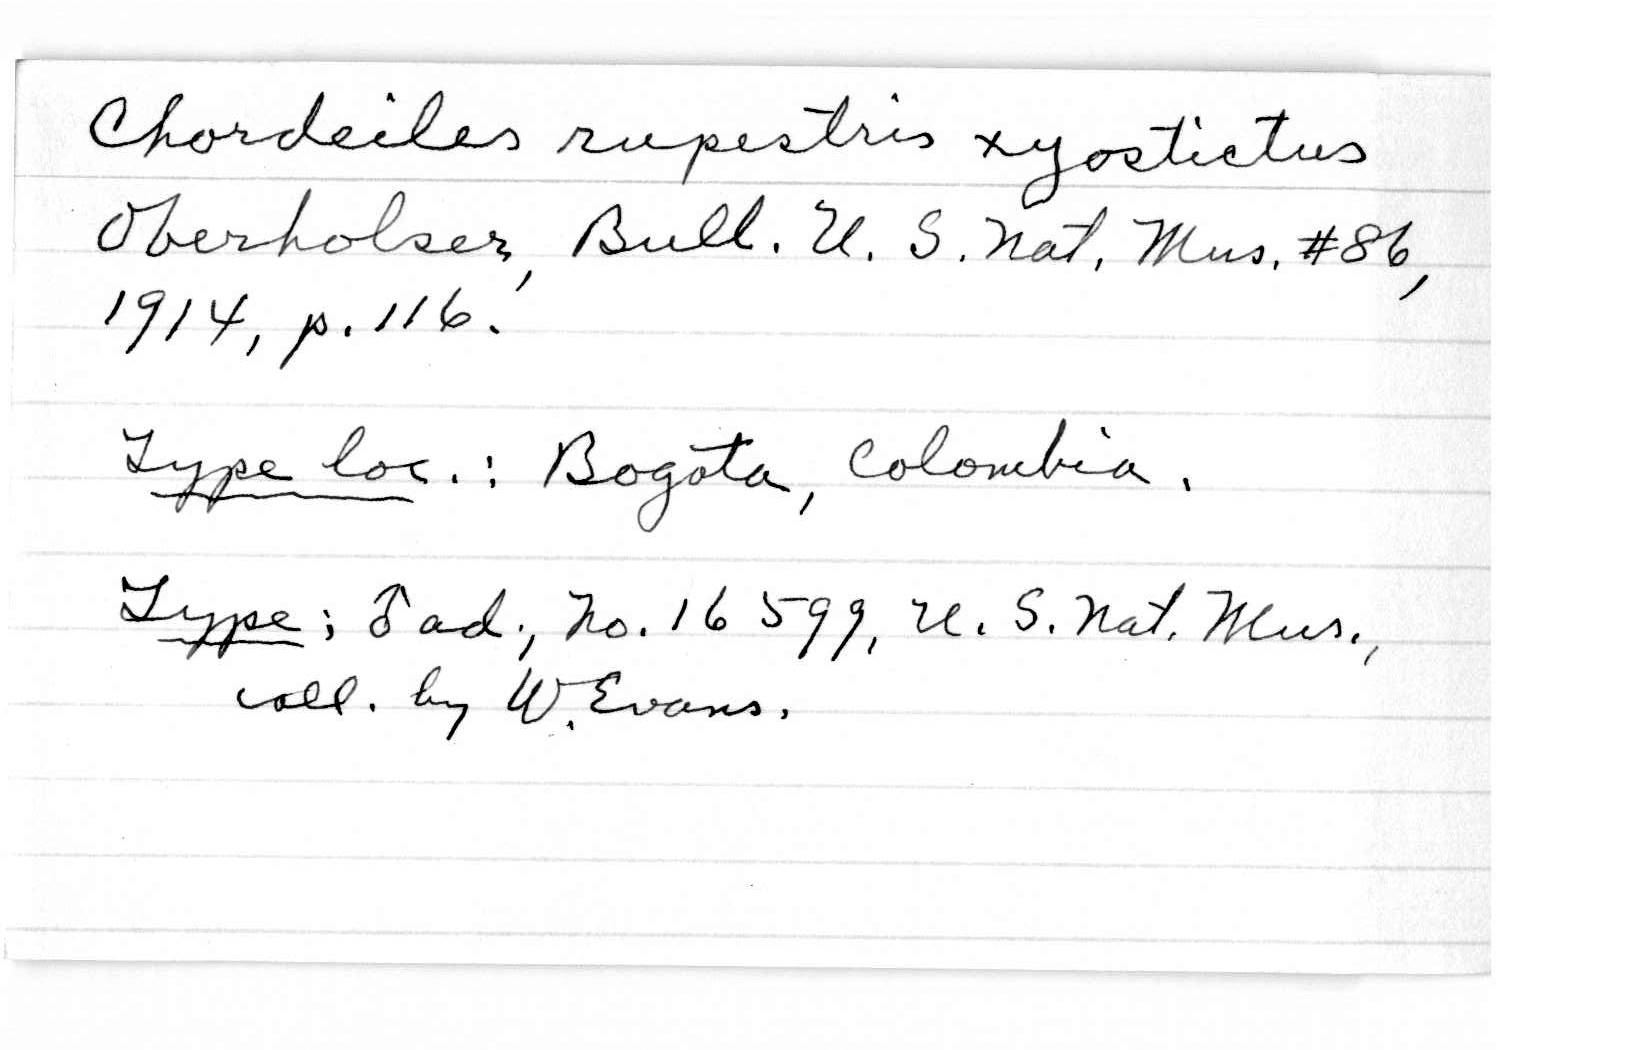 Chordeiles rupestris xyostictus
Oberholser, Bull. U. S. Nat. Mus. #86,
1914, p. 116.
Type loc.: Bogota, Colombia.
Type: ♂ ad., No. 16599, U. S. Nat. Mus.,
coll. by W. Evans.